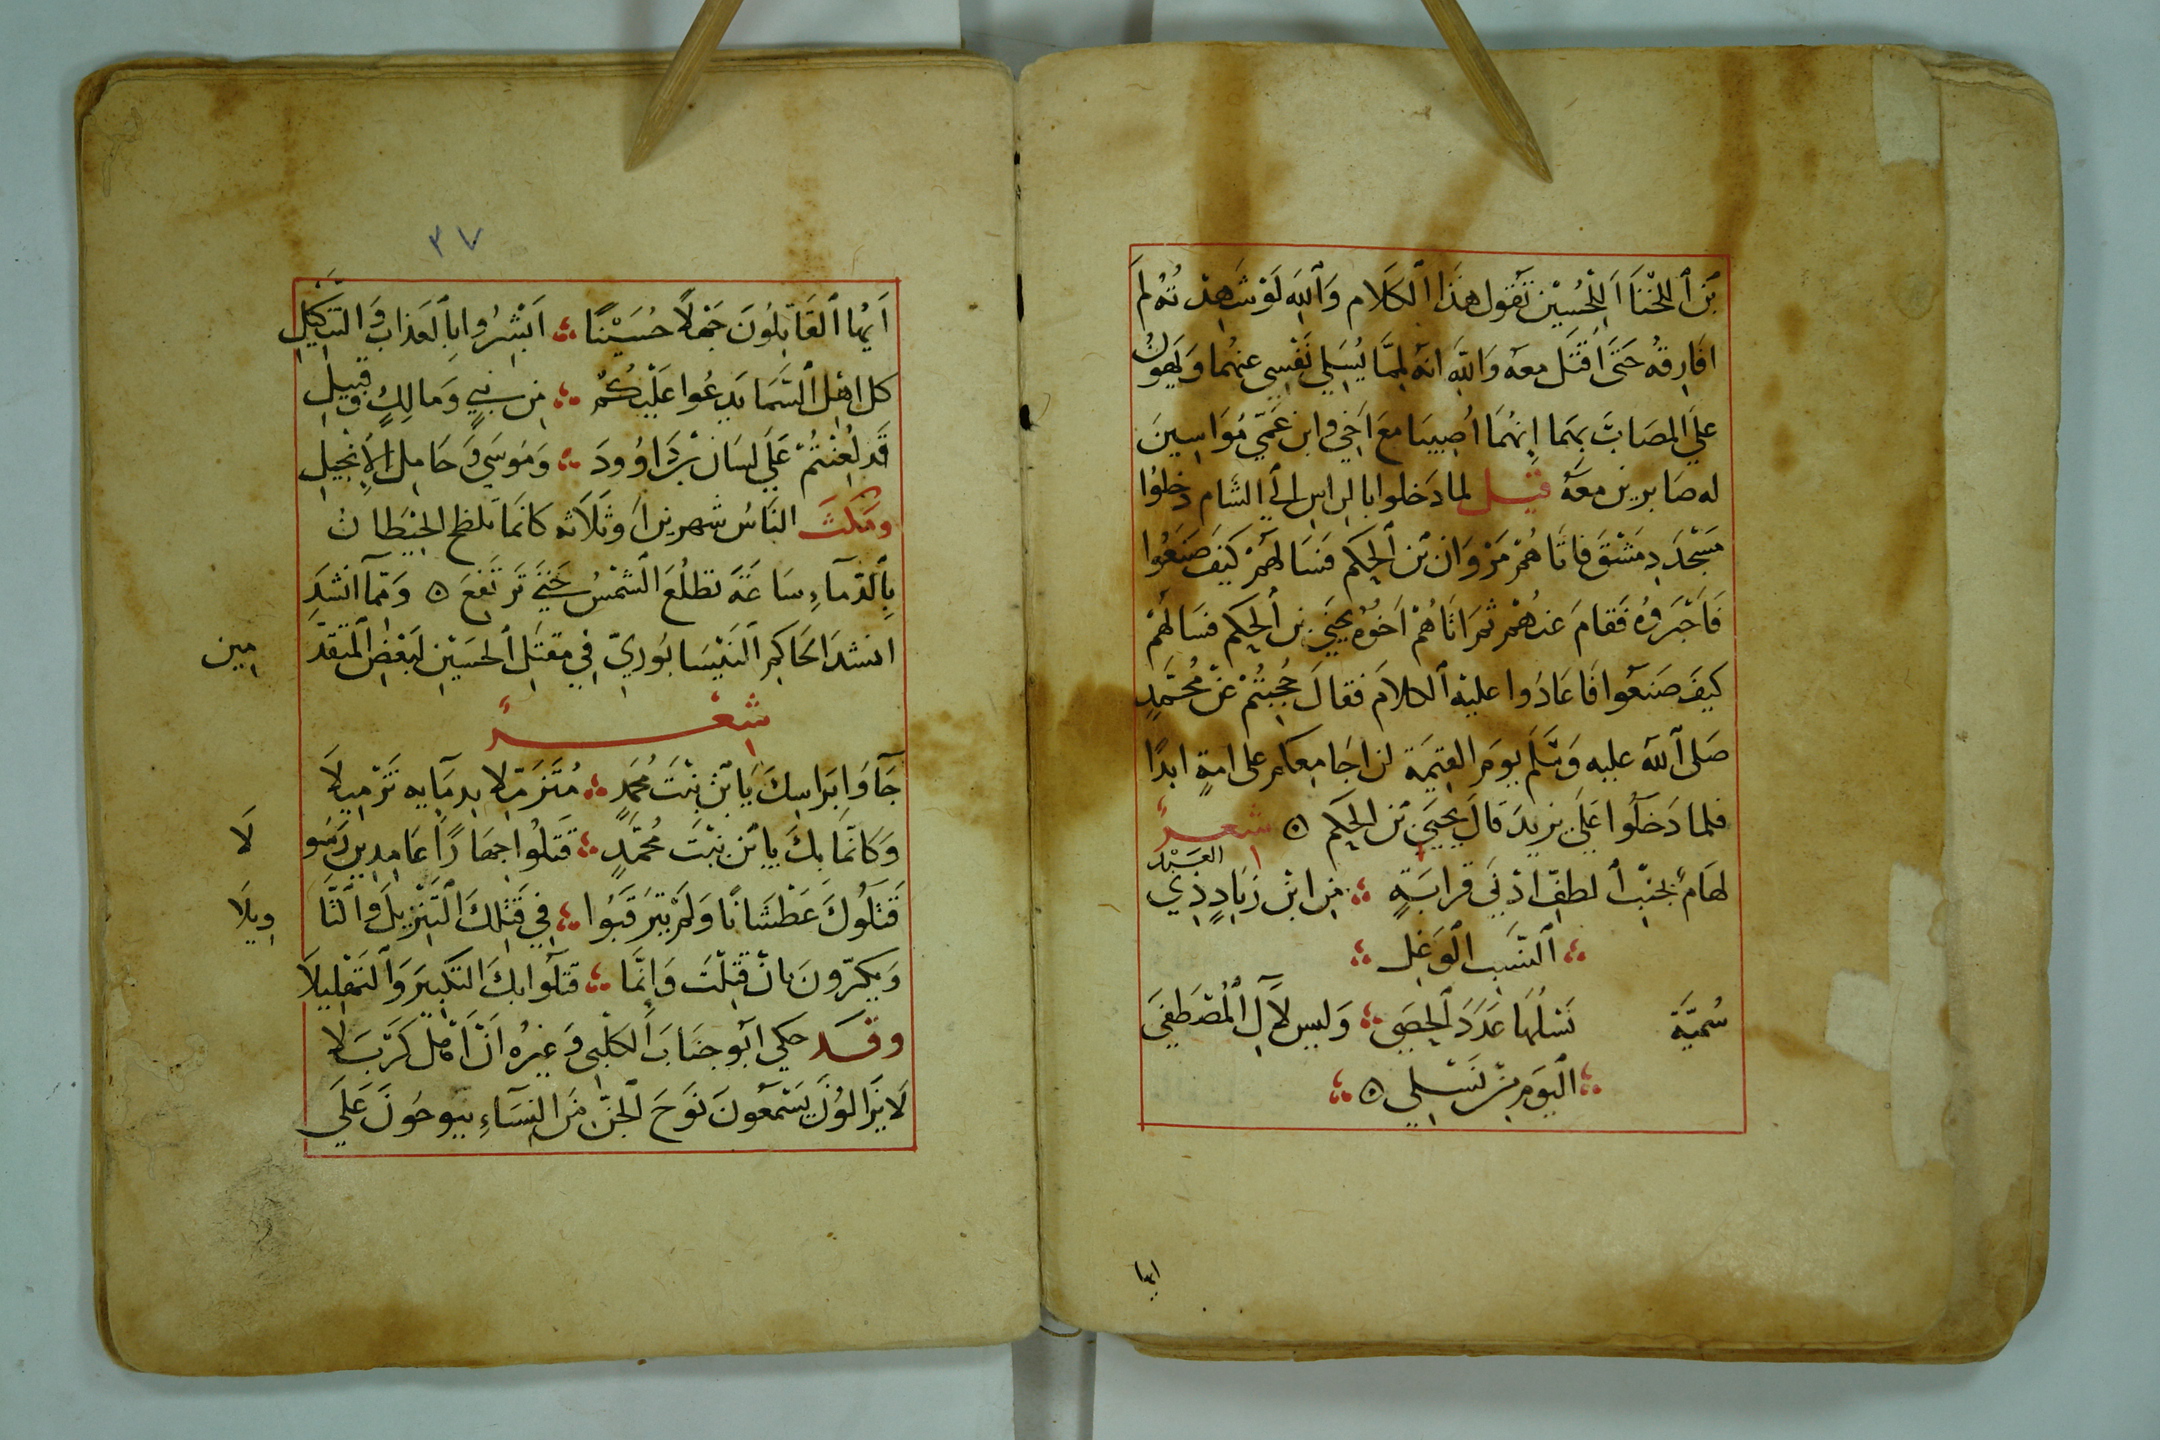 بْن ٱللخْنَا اَلِلْحُسَيْن تَقول هذَا ٱلكَلَام وَٱللَّهِ لَوْ شَهِدْتُهُ لَمَ
افَارِقهُ حَتَّى اُقتَل معه وَاللَّهِ انه لمِمَّا يُسَلِي نَفْسِي عنهُما وَيهون
علَي المصَابَ بِهمَا اِنهُمَا اُصِيبَا معَ اَخِي وابن عَمِّي مُوَاسِينَ
له صَابرين معَهُ قيْل لما دَخلوا بالراس الي الشَام دخلوُا
مَسْجدَ دِمَشْقَ فاتَاهُمْ مَرْوَان بْن ٱلحكَم فَسَالَهُمْ كَيفَ صَنَعُوا
فَاَخْبَروُهُ فَقامَ عندهُمْ ثم اتَاهُمْ اَخوُهُ يَحيَى بن ٱلحكَم فسَالَهُمْ
كيفَ صَنعَوا فَاعَادُوا عليهْ ٱلكلامَ فقَالَ حُجِبْتُمْ عَنْ مُحَمَّدٍ
صَلى ٱللَّه عليه وَسَّلَم يومَ القيٰمَة لن اجَامِعكم على امةٍ ابدًا
فلما دَخَلُوا عَلَي يزيدَ قَالَ يَحيَي بْن الحَكم ۞ شعرٌ
لهَامٌ بجنبْ ٱلطفِّ ادْنَي قرابَةٍ ؞ مِن ابْن زيَادٍ ذِي العَبْد
؞ ٱلنسَب ٱلوَغل ؞
سُميَّة نَسْلُهَا عَدَدَ ٱلحَصَى ؞ وَليس لآل ٱلمُصْطَفَي
؞ ٱليَومَ مِنْ نَسْلِي ۞ ؞
ايها
٣٧
اَيُّها ٱلقَاتِلُونَ جَهْلًا حُسَيْنًا ؞ اَبْشِرُوا باِٱلعَذاب وَ التنْكيْلِ
كل اهْل ٱلسَّمَا يَدعُوا عَلَيْكُمُ ؞ مِن نبيٍ وَمَالِكٍ وقبيلِ
قَد لُعِنْتُمْ عَلَي لِسَان بْن دَاوُودَ ؞ وَمُوسَي وَحَامِل الاِنجيلِ
ومَكثَ النَاسُ شهرين اَوْ ثَلَاثه كانَما تلطخ الحيْطَانُ
بِٱلدّمآءِ سَاعَةَ تطلُعَ الشمْسُ حَتّي تَرتَفعَ ۞ وَمِمّا انشَدَ
انشدَ الحَاكِم ٱلنيْسَابُوريّ فِي مقتَل ٱلحسَيْن لبَعْضِ المتَقَدّ
مِين
شِعْرٌ
جَآوَا بِرَاسِكَ يَا بْنَ بنْتَ مُحَمَدٍ ؞ مُتَزَمّلا بدِمَآيه تَزميلَا
وَكانَّمَا بكَ يا بْن بنْتَ مُحَمَّدٍ ؞ قَتَلُوا جهَارًا عَامِدِين رَسُو
لَا
قَتَلُوكَ عَطْشَانًا وَلَمْ يتَرقَبَوُا ؞ فِي قَتْلِكَ التَنزيلَ وَالتَّا
وِيلَا
وَيكبّرونَ بانْ قُتِلْتَ وَاِنَّمَا ؞ قتَلُوا بكَ التكَبيَر وَٱلتَهْلِيلَا
وقَد حكي ابُو جنَابَ ٱلكلبي وَغيرُهُ انّ اَهْل كَرْبَلا
لَا يَزالوُنَ يَسْتَمعُونَ نَوحَ ٱلجنّ مَن النسَآءِ ينوحُونَ عَلَي